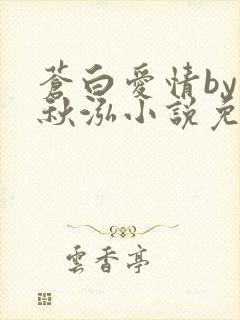 蒼白愛情by
秋泓小説免
雲香亭